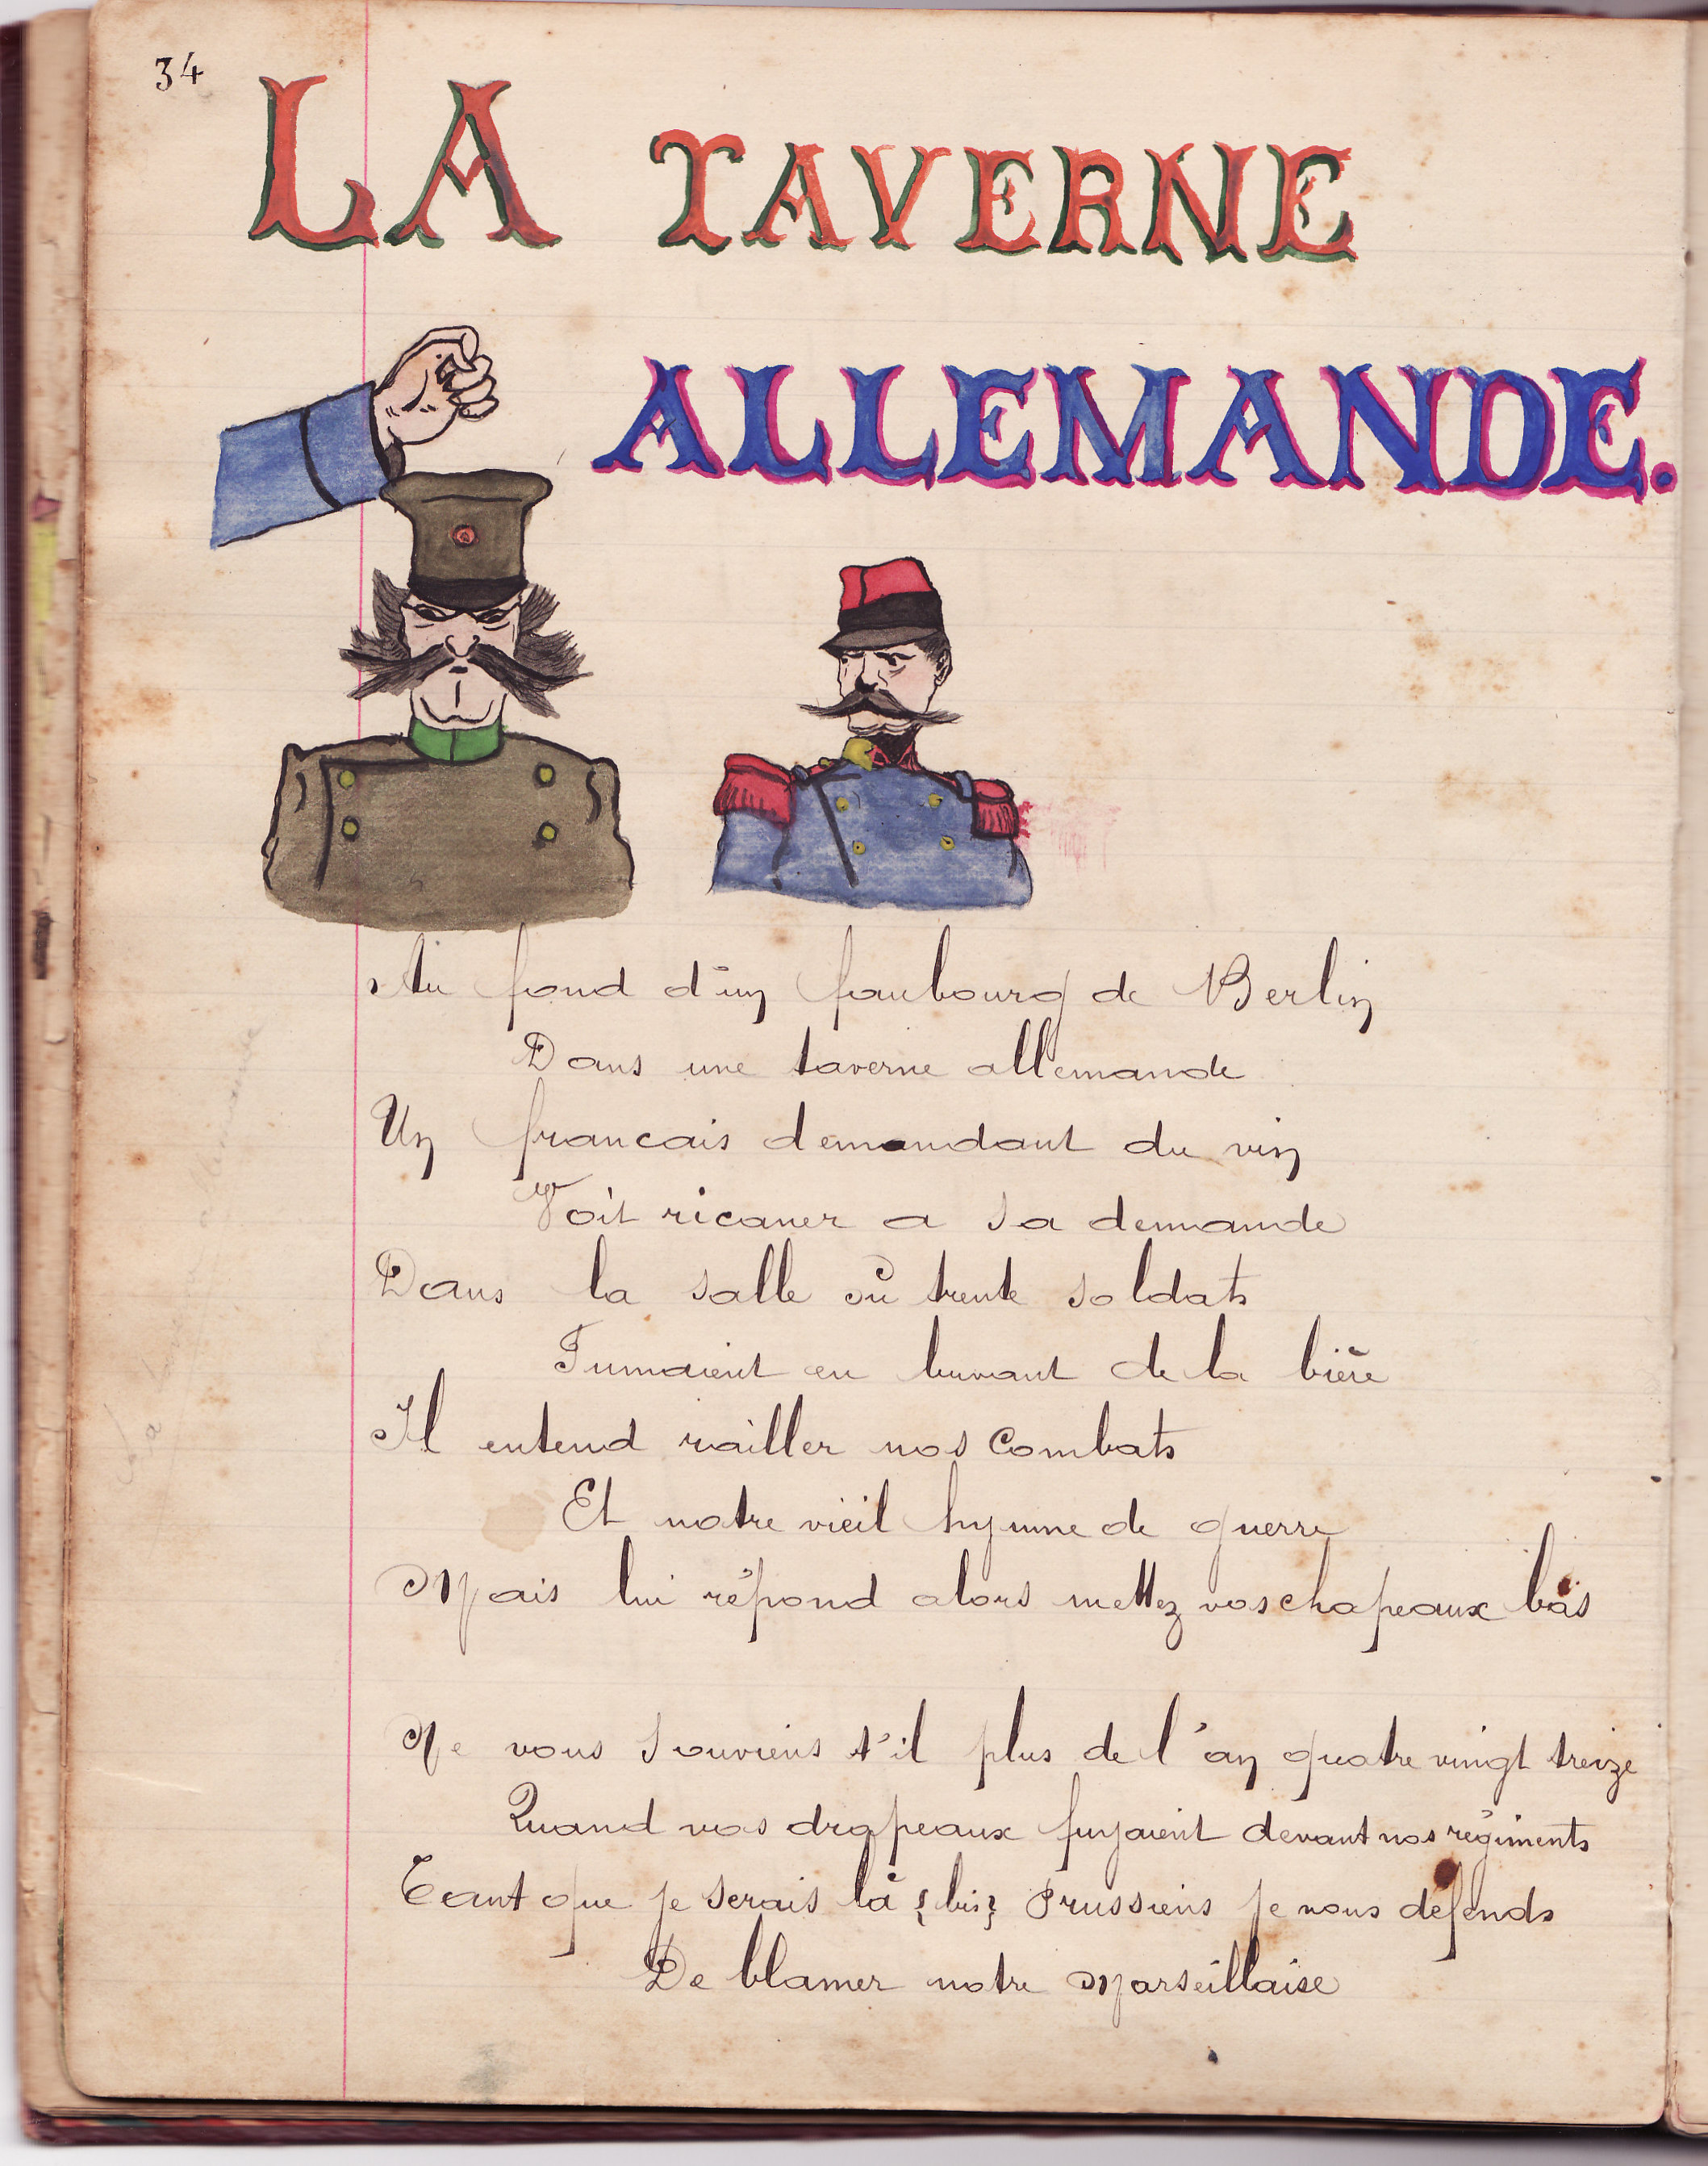 34
LA TAVERNE
ALLEMANDE.
Au fond d'un faubourg de Berlin
Dans une taverne allemande
Un francais demandant du vin
Voit ricaner a sa demande
Dans la salle où trente soldats
Fumaient en buvant de la bière
Il entend railler nos combats
Et notre vieil hymne de guerre
Mais lui répond alors mettez vos chapeaux bas
Ne vous souviens t'il plus de l'an quatre vingt treize
Quand vos drapeaux fuyaient devant nos régiments
Tant que je serais là {bis} Prussiens je vous défends
De blamer notre Marseillaise